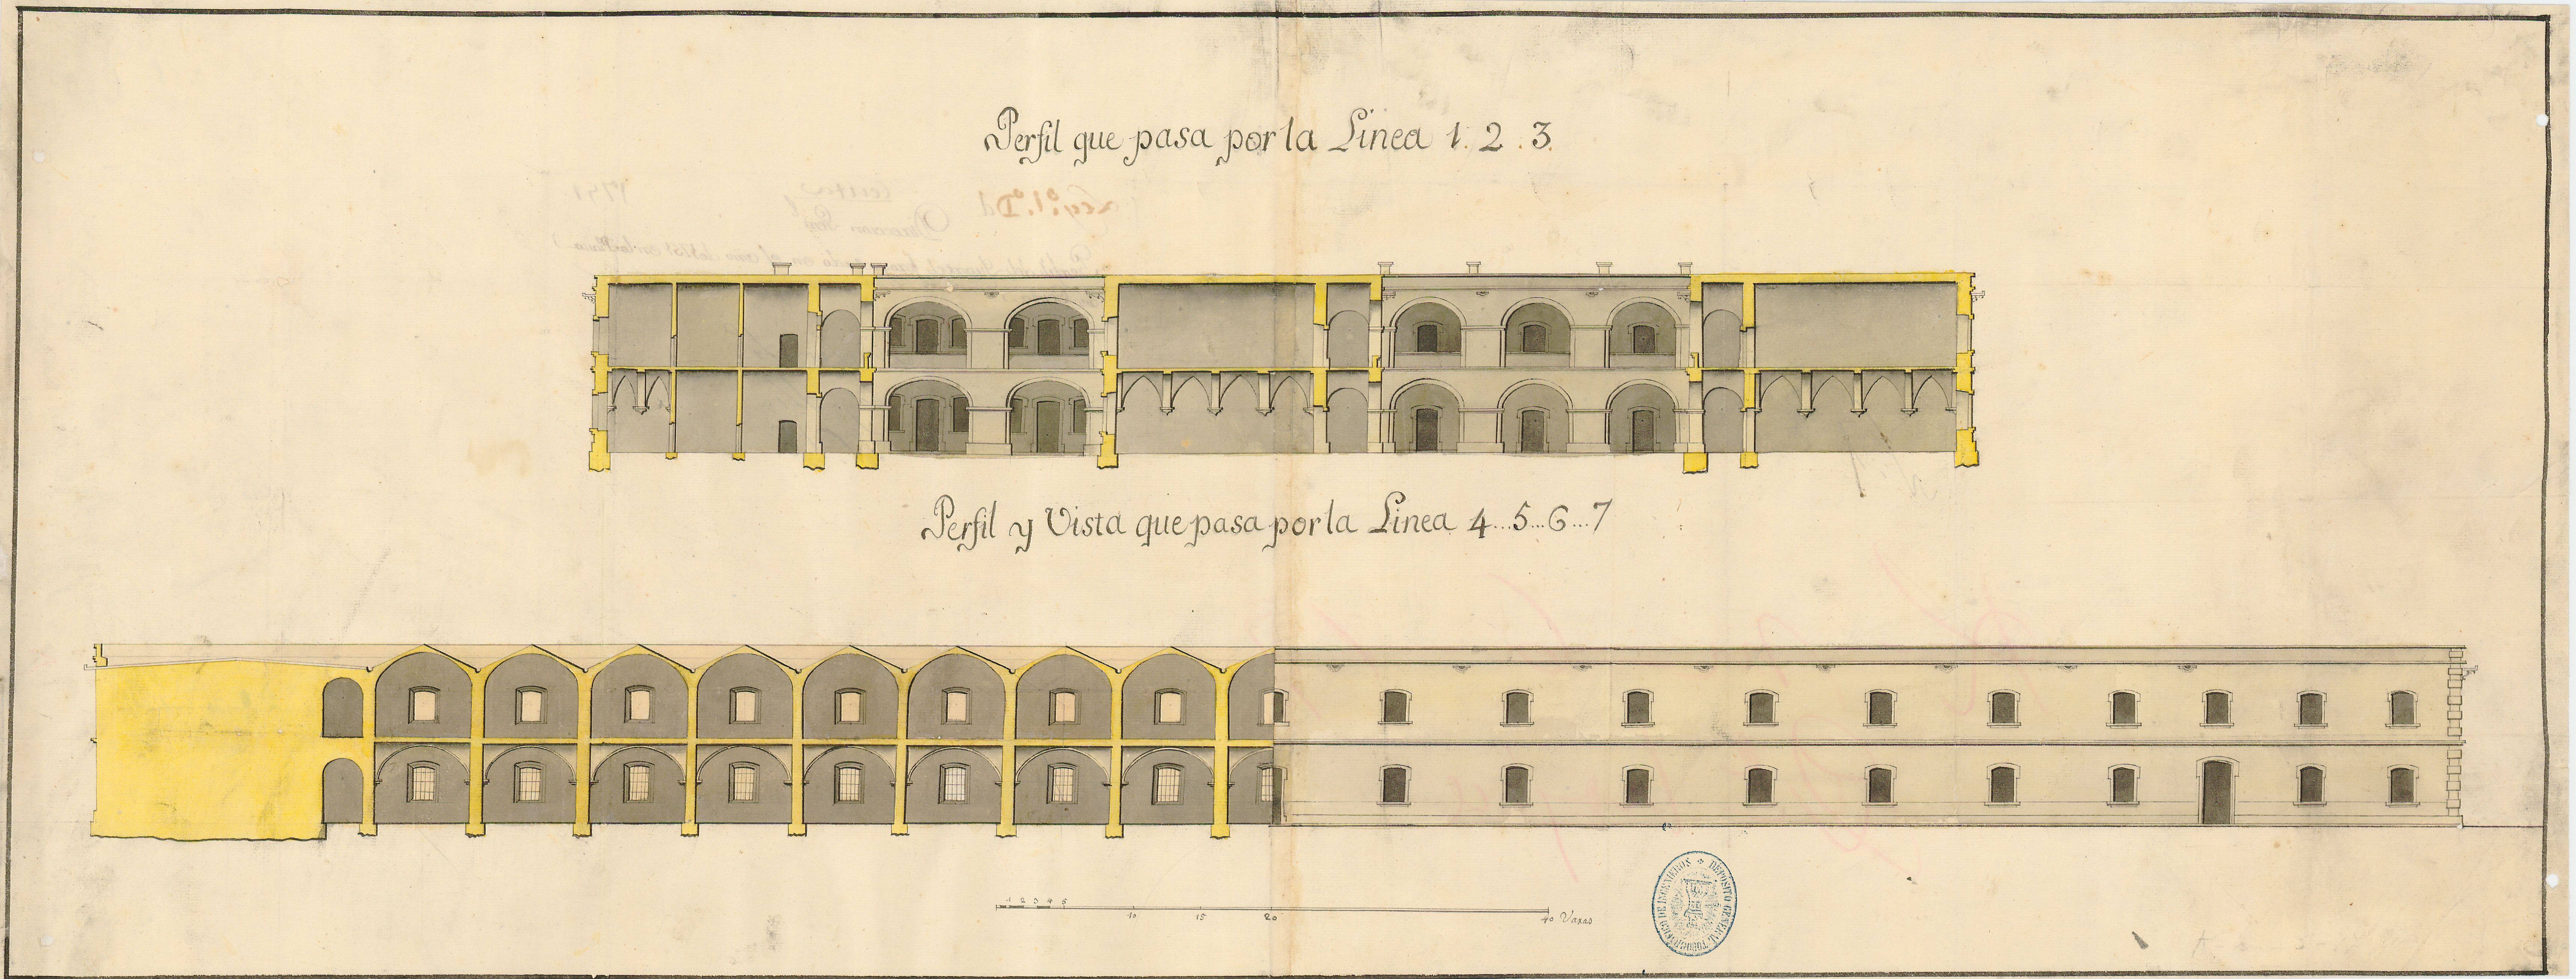 Perfil que pasa por la Linea 1. 2. 3.
Perfil y Vista que pasa por la Linea 4...5...6...7
1 2 3 4 5 10 15 20 40 Varas
DEPOSITO GENERAL TOPOGRAFICO DE INGENIEROS